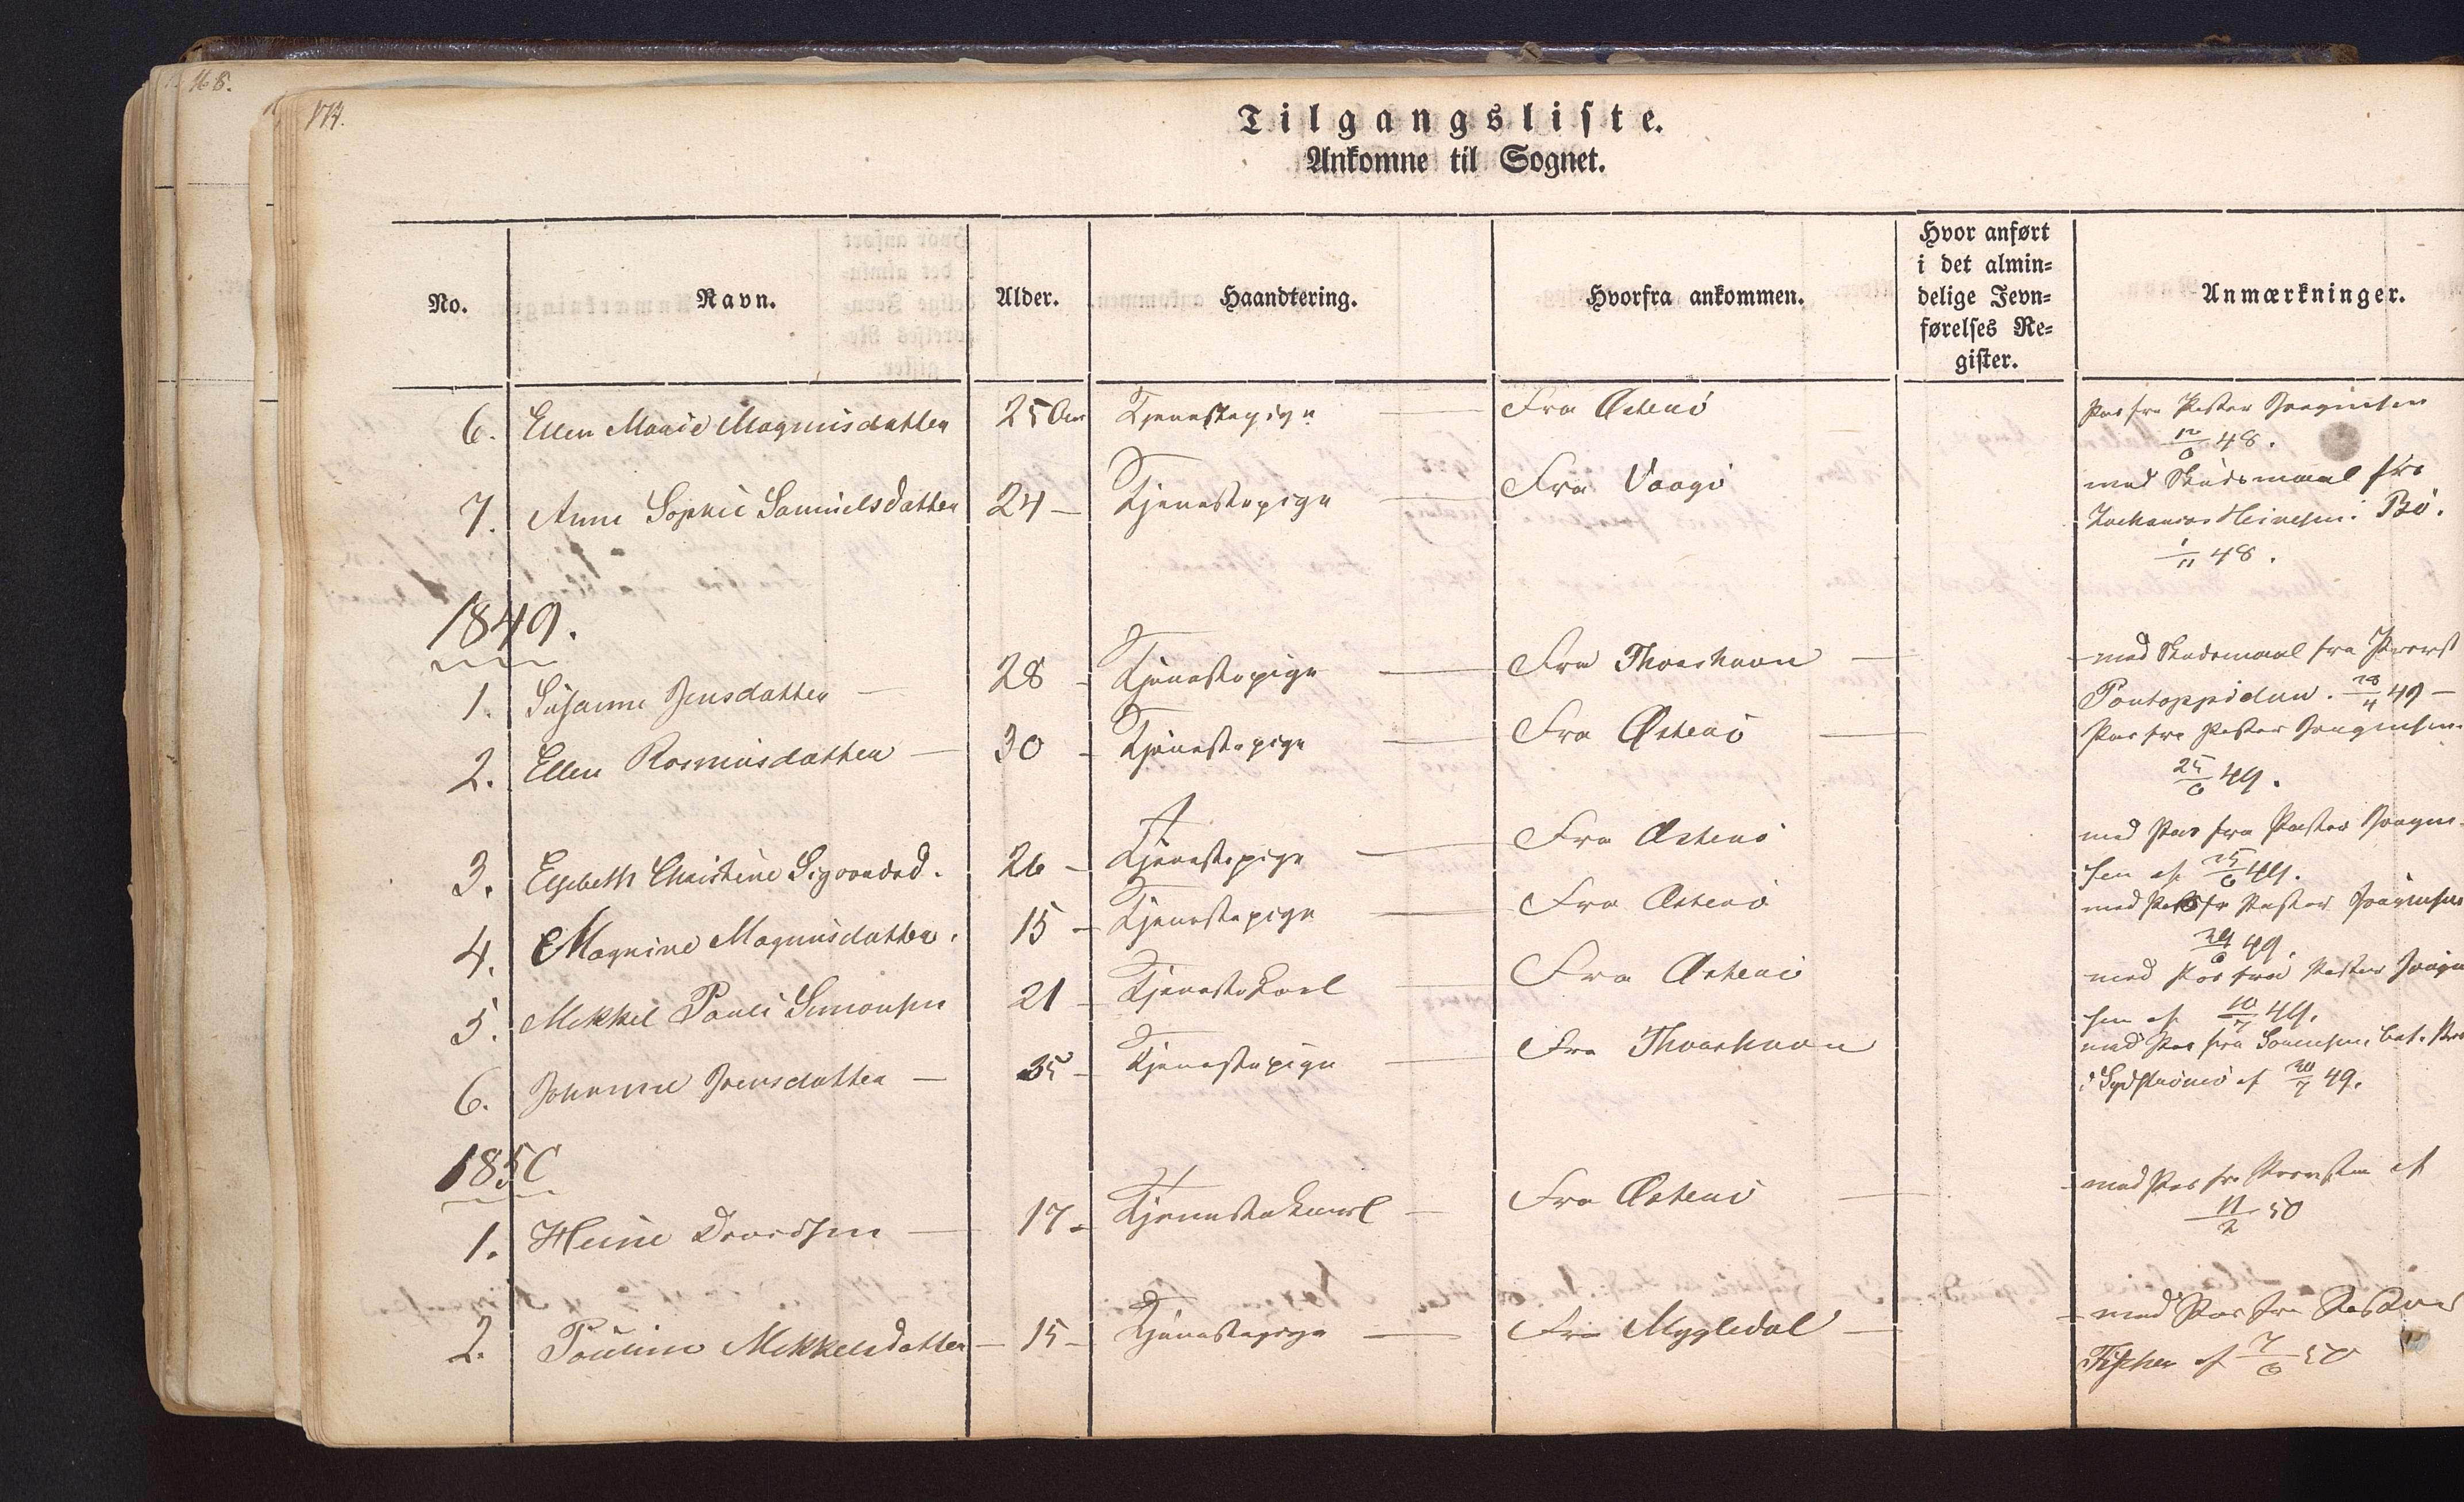 168.
174.
Tilgangsliste.
Ankomne til Sognet.
No. Navn. Alder. Haandtering. Hvorfra ankommen. Hvor anført i det almin= delige Jevn= førelses Re= gister. Anmærkninger.
6. Ellen Marie Magnusdatter 25 Aar Tjenestepige — Fra Østerö Pas fra Pastor Jørgensen
12/6 48.
7. Anne Sophie Samuelsdatter 24 — Tjenestepige — Fra Vaagö med Skudsmaal fra
Zacharias Heinesen. Bö.
1/11 48.
1849.
1. Susanne Jensdatter — 28 — Tjenestepige — Fra Thorshavn — med Skudsmaal fra Provst
Pontoppidan. 28/4 49 —
2. Ellen Rasmusdatter — 30 — Tjenestepige — Fra Østerö — Pas fra Pastor Jørgensen.
25/6 49.
3. Elsebeth Christine Sigvardsd. 26 — Tjenestepige — Fra Østerö med Pas fra Pastor Jørgen-
sen af 25/6 49.
4. Magnine Magnusdatter. 15 — Tjenestepige — Fra Østerö med Pas fr Pastor Jørgensen
24/6 49.
5. Mikkel Pauli Simonsen 21 — Tjenestekarl — Fra Østerö med Pas fra Pastor Jørgen
sen af 10/7 49.
6. Johanne Jensdatter — 35 — Tjenestepige — Fra Thorshavn med Pas fra Sörensen, Cst.
i Sydströmö af 20/7 49.
1850
1. Heine Davidsen — 17 — Tjenestekarl — Fra Østerö — med Pas fra Provsten af
11/2 50
2. Pouline Mikkelsdatter — 15 — Tjenestepige — Fra Mygledal — med Pas fra Pastor
Fischer af 7/6 50